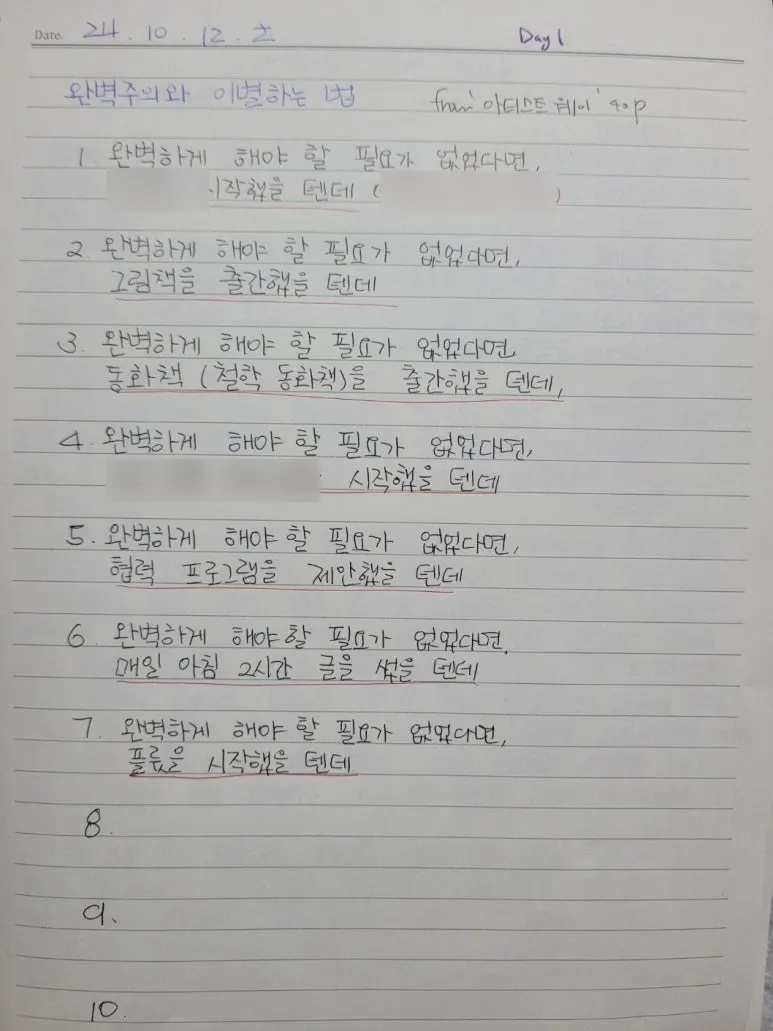 Date. 24. 10. 12. 토
Day 1
완벽주의와 이별하는 법 from '아티스트 웨이' 40p
1. 완벽하게 해야 할 필요가 없었다면,
시작했을 텐데 ( )
2. 완벽하게 해야 할 필요가 없었다면,
그림책을 출간했을 텐데
3. 완벽하게 해야 할 필요가 없었다면,
동화책 (철학 동화책)을 출간했을 텐데,
4. 완벽하게 해야 할 필요가 없었다면,
시작했을 텐데
5. 완벽하게 해야 할 필요가 없었다면,
협력 프로그램을 제안했을 텐데
6. 완벽하게 해야 할 필요가 없었다면,
매일 아침 2시간 글을 썼을 텐데
7. 완벽하게 해야 할 필요가 없었다면,
플룻을 시작했을 텐데
8.
9.
10.